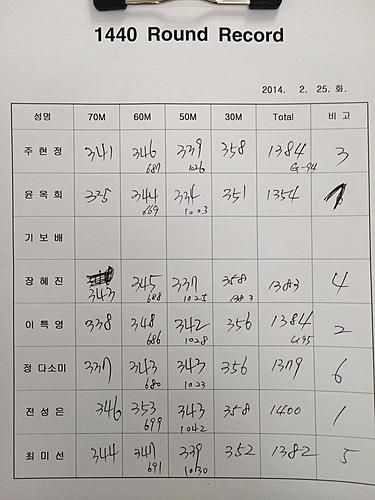 1440 Round Record
2014. 2. 25. 화.
성명 70M 60M 50M 30M Total 비 고
주 현 정 341 346 339 358 1384 3
687 1026 G-94
윤 옥 희 325 344 334 351 1354
669 1003
기 보 배
장 혜 진 343 345 337 358 1383 4
688 1025 1383
이 특 영 338 348 342 356 1384 2
686 1028 G95
정 다소미 337 343 343 356 1379 6
680 1023
전 성 은 346 353 343 358 1400 1
699 1042
최 미 선 344 347 339 352 1382 5
691 1030